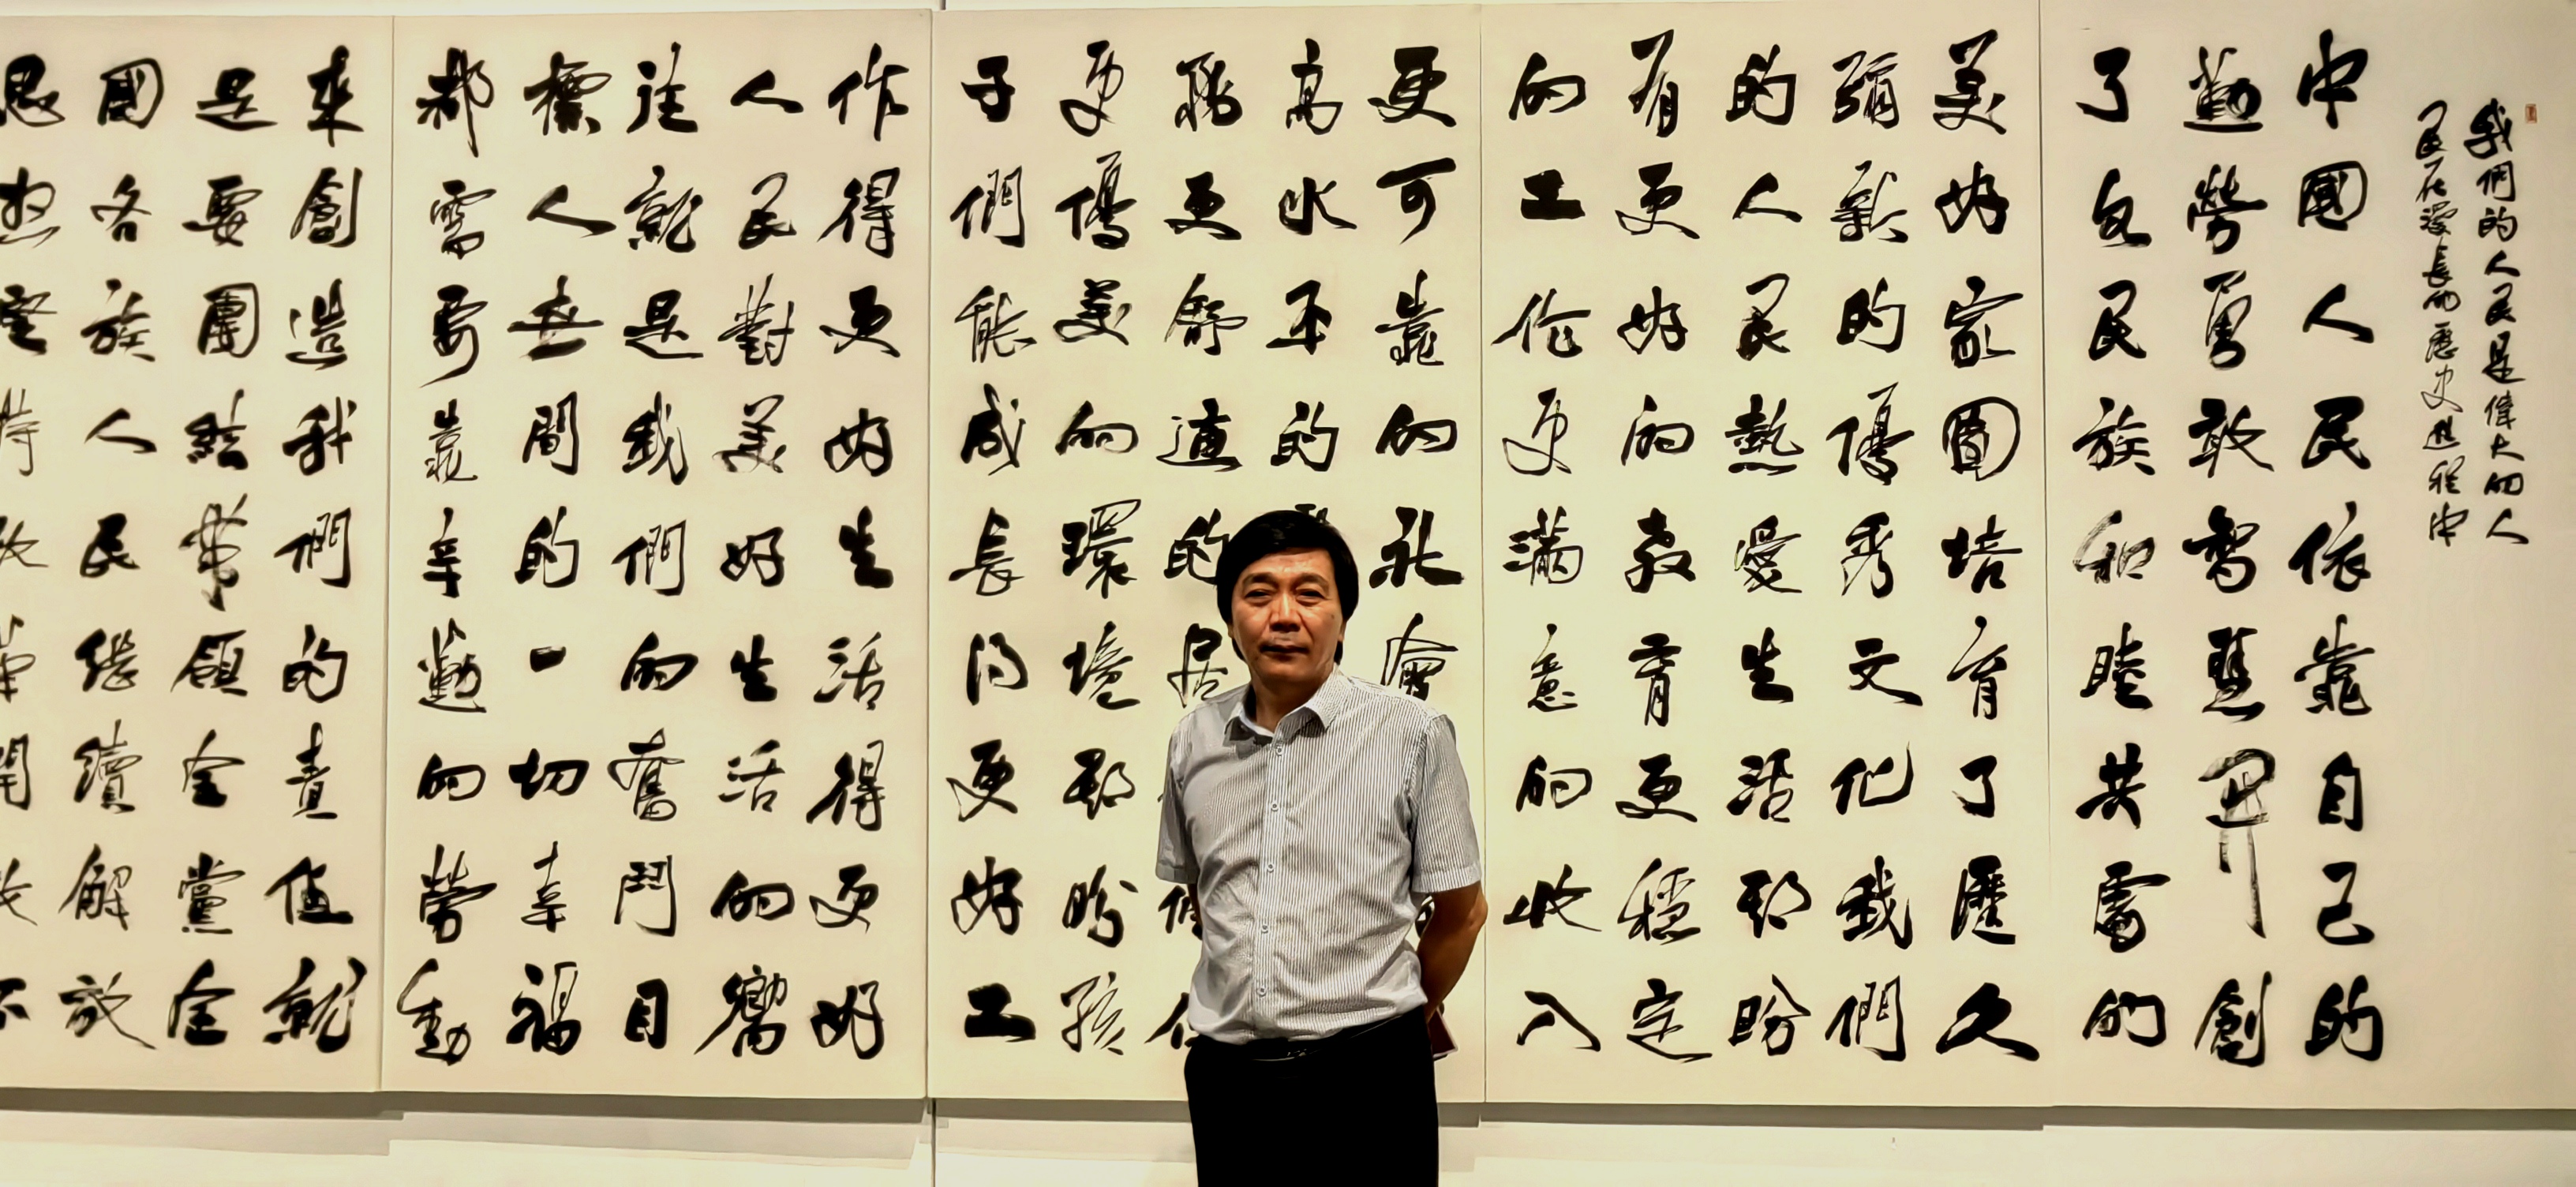 我們的人民是偉大的人
民在漫長的歷史進程中
中國人民依靠自己的
勤勞勇敢智慧開創
了各民族和睦共處的
美好家園培育了歷久
彌新的優秀文化我們
的人民熱愛生活期盼
有更好的教育更穩定
的工作更滿意的收入
更可靠的社會
高水平的
務更舒適的居
更優美的環境期盼孩
子們能成長得更好工
作得更好生活得更好
人民對美好生活的嚮
往就是我們的奮鬥目
標人世間的一切幸福
都需要靠辛勤的勞動
來創造我們的責任就
是要團結帶領全黨全
國各族人民繼續解放
思想堅持改革開放不